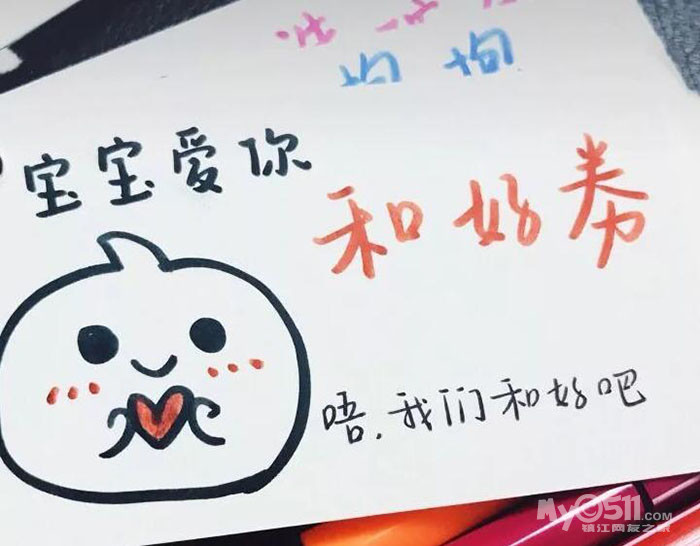 宝宝爱你
和好券
唔,我们和好吧
My0511.com
镇江网友之家